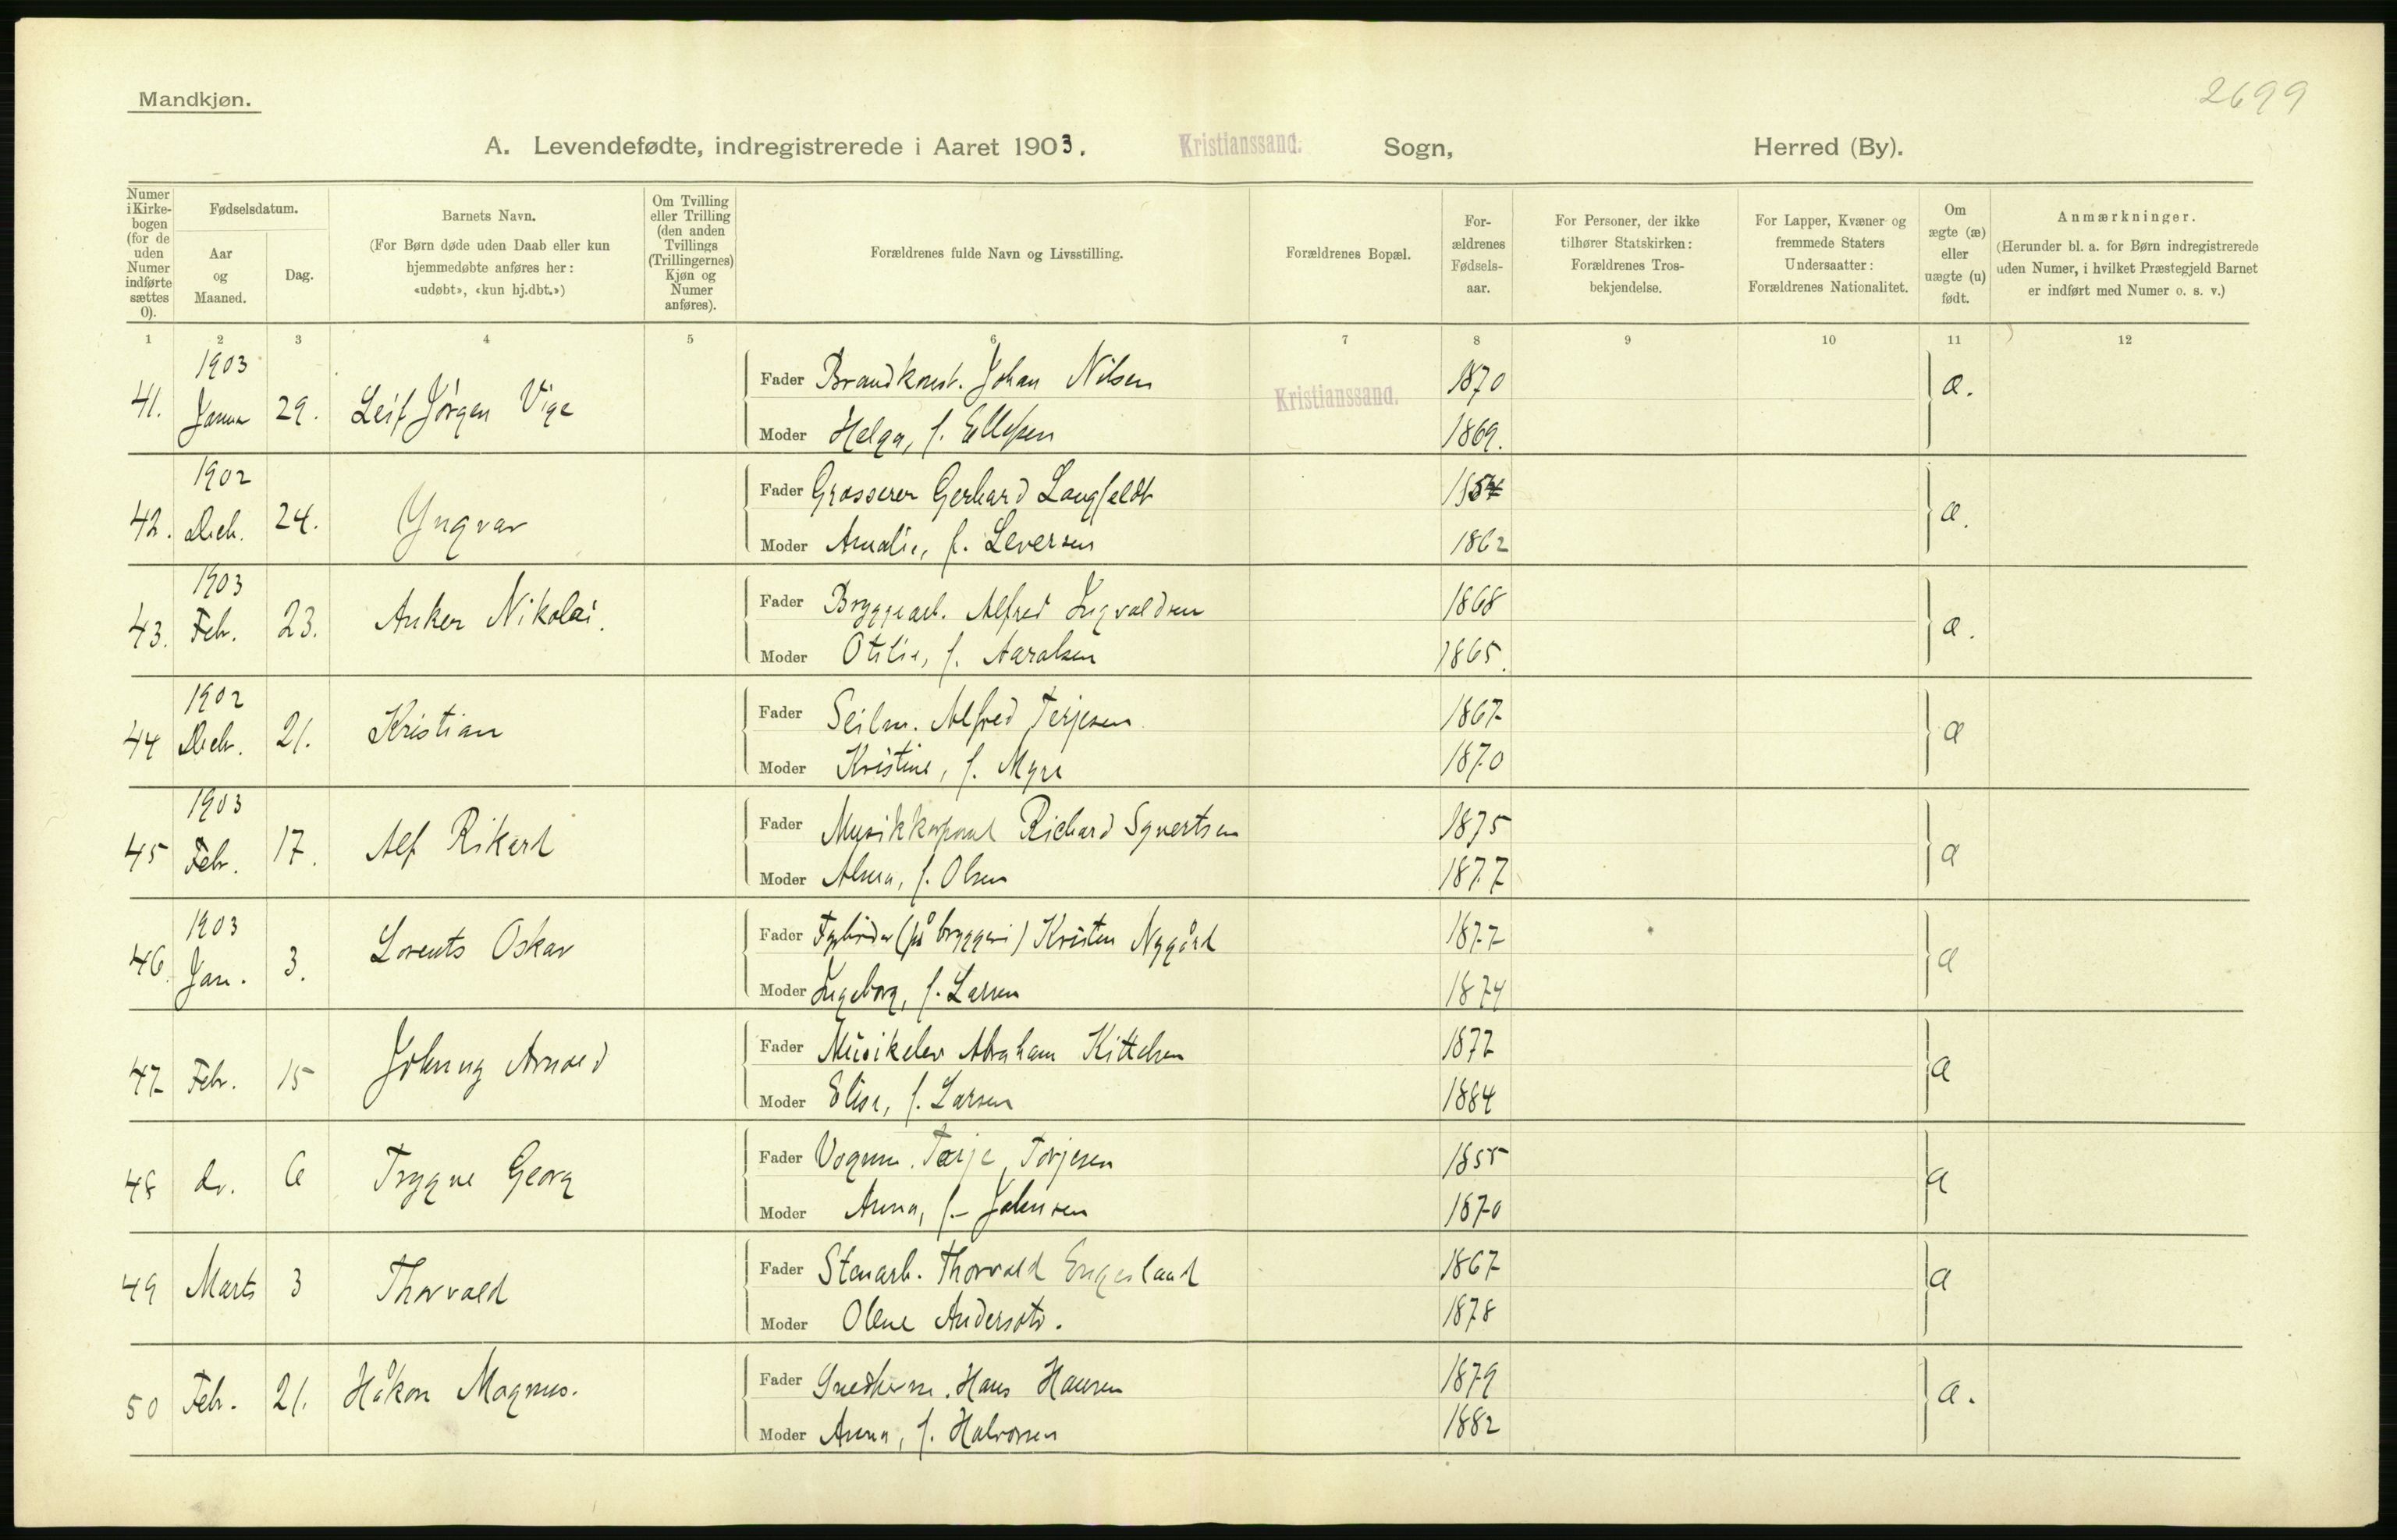 Mandkjøn.
2699
A. Levendefødte, indregistrerede i Aaret 1903. Kristianssand. Sogn, Herred (By).
Numer i Kirkebogen (for de uden Numer indførte sættes 0).
Fødselsdatum.
Aar og Maaned.
Dag.
Barnets Navn.
(For Børn døde uden Daab eller kun hjemmedøbte anføres her: «udøbt», «kun hj.dbt.»)
Om Tvilling eller Trilling (den anden Tvillings (Trillingernes) Kjøn og Numer anføres).
Forældrenes fulde Navn og Livsstilling.
Forældrenes Bopæl.
Forældrenes Fødselsaar.
For Personer, der ikke tilhører Statskirken: Forældrenes Trosbekjendelse.
For Lapper, Kvæner og fremmede Staters Undersaatter: Forældrenes Nationalitet.
Om ægte (æ) eller uægte (u) født.
Anmærkninger.
(Herunder bl. a. for Børn indregistrerede uden Numer, i hvilket Præstegjeld Barnet er indført med Numer o. s. v.)
1 2 3 4 5 6 7 8 9 10 11 12
41. 1903 Janua 29. Leif Jörgen Vige
Fader Brandkonst. Johan Nilsen Kristianssand. 1870 æ.
Moder Helga, f. Ellefsen 1869.
42. 1902 Dech. 24. Yngvar
Fader Grosserer Gerhard Langfeldt 1854 æ.
Moder Amalie, f. Leversen 1862
43. 1903 Feb. 23. Anker Nikolai.
Fader Bryggearb. Alfred Ingvaldsen 1868 æ.
Moder Otilie, f. Aaralsen 1865.
44 1902 Decb. 21. Kristian
Fader Seilm. Alfred Terjesen 1867 æ
Moder Kristine, f. Myre 1870
45 1903 Feb. 17. Alf Rikard
Fader Musikkorporal Richard Syvertsen 1875 æ
Moder Alma, f. Olsen 1877
46. 1903 Jan. 3. Lorents Oskar
Fader Fyrbøder (på bryggeri) Kristen Nygård 1877 æ
Moder Ingeborg, f. Larsen 1874
47 Febr. 15 Johnny Arnold
Fader Musikelev Abraham Kittelsen 1877 æ
Moder Elise, f. Larsen 1884
48 do. 6 Trygve Georg
Fader Vognm. Terje Torjesen 1855 æ
Moder Anna, f. Johnsen 1870
49 Marts 3 Thorvald
Fader Stenarb. Thorvald Engesland 1867 æ
Moder Olene Andersdtr. 1878
50 Feb. 21. Håkon Magnus.
Fader Snedkerm. Hans Hansen 1879 æ.
Moder Anna, f. Halvorsen 1882